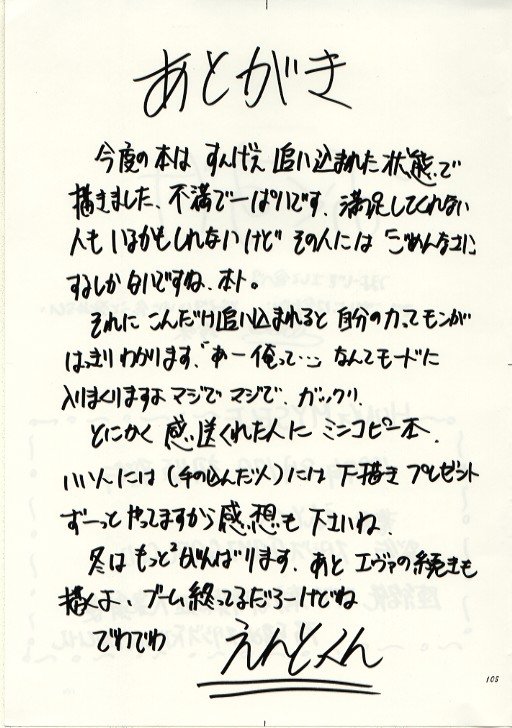 あとがき
今度の本は すんげえ 追い込まれた 状態で
描きました、不満で一ぱいです、満足してくれない
人も いるかもしれないけど その人には「ごめんなさい」
するしかないですね、ホト。
それに こんだけ追い込まれると 自分の力ってモンが
はっきりわかります、「あー俺って…」なんてモードに
入りまくりますよ マジで マジで、ガックリ、
とにかく 感想送くれた人に ミニコピー本、
いい人には(手の込んだ人)には 下描き プレゼント
ずーっと やってますから 感想も 下さいね、
冬は もっと²がんばります、あと エヴァの続きも
描くよ、ブーム終ってるだろーけどね
でわでわ
えんどくん
105